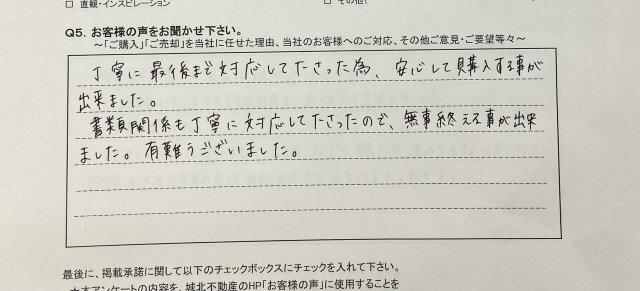 □ 直観・インスピレーション　□ その他（
Q5. お客様の声をお聞かせ下さい。
～「ご購入」「ご売却」を当社に任せた理由、当社のお客様へのご対応、その他ご意見・ご要望等々～
丁寧に最後まで対応して下さった為、安心して購入する事が
出来ました。
書類関係も丁寧に対応して下さったので、無事終える事が出来
ました。有難うございました。
最後に、掲載承諾に関して以下のチェックボックスにチェックを入れて下さい。
★本アンケートの内容を、城北不動産のHP「お客様の声」に使用することを